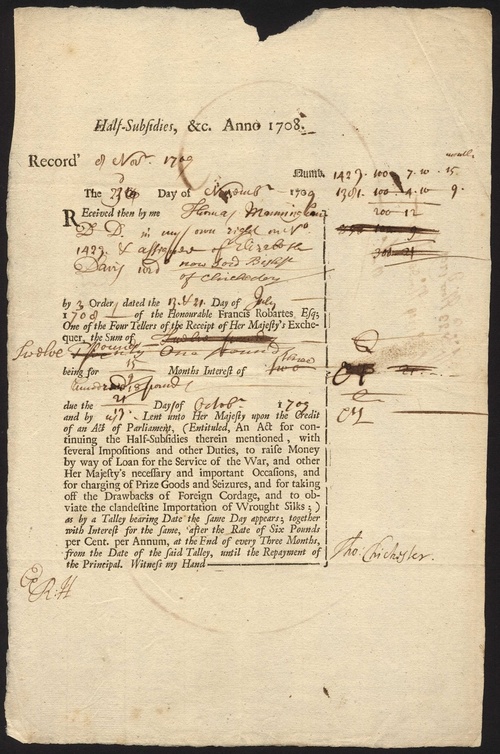 Half-Subsidies, &c. Anno 1708.
Record' 8 Novr. 1709
Numb. 1423 . 100 7 . 10 . 15
The Day of Novembr 1709 1381 . 100 . 4 . 10 9 .
200 12
REceived then by me Thomas Manningham
D. D. in my own right in No.
1423 & assignee of Elizabeth
Davis
now Lord Bishop
of Chichester
by 3 Order, dated the 13 & 21 Day of July
1708 of the Honourable Francis Robartes, Esq;
One of the Four Tellers of the Receipt of Her Majesty's Exche-
quer, the Sum of
Twelve Pounds
being for 15 9 Months Interest of
hundred pounds
due the Days of Octobr 1709
and by Lent unto Her Majesty upon the Credit
of an Act of Parliament, (Entituled, An Act for con-
tinuing the Half-Subsidies therein mentioned, with
several Impositions and other Duties, to raise Money
by way of Loan for the Service of the War, and other
Her Majesty's necessary and important Occasions, and
for charging of Prize Goods and Seizures, and for taking
off the Drawbacks of Foreign Cordage, and to ob-
viate the clandestine Importation of Wrought Silks;)
as by a Talley bearing Date the same Day appears; together
with Interest for the same, after the Rate of Six Pounds
per Cent. per Annum, at the End of every Three Months,
from the Date of the said Talley, until the Repayment of
the Principal. Witness my Hand
Tho. Chichester.
R. H